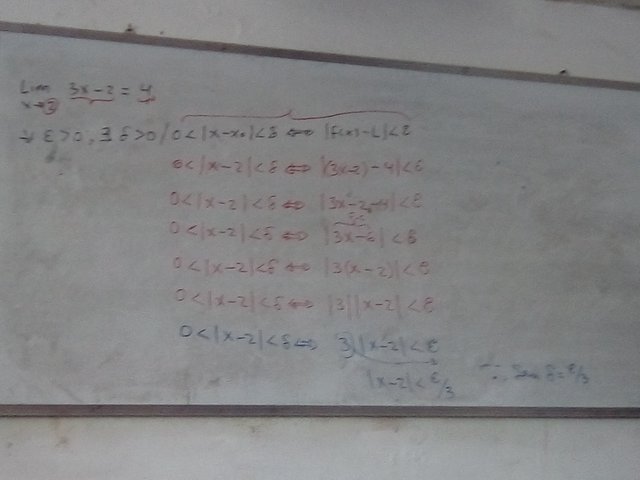 Lim 3x-2 = 4
x→2
∀ ε>0, ∃ δ>0 / 0<|x-x₀|<δ ⇔ |f(x)-L|<ε
0<|x-2|<δ ⇔ |(3x-2)-4|<ε
0<|x-2|<δ ⇔ |3x-2-4|<ε
0<|x-2|<δ ⇔ |3x-6|<ε
0<|x-2|<δ ⇔ |3(x-2)|<ε
0<|x-2|<δ ⇔ |3||x-2|<ε
0<|x-2|<δ ⇔ 3|x-2|<ε
|x-2|<ε/3 ∴ Sea δ=ε/3